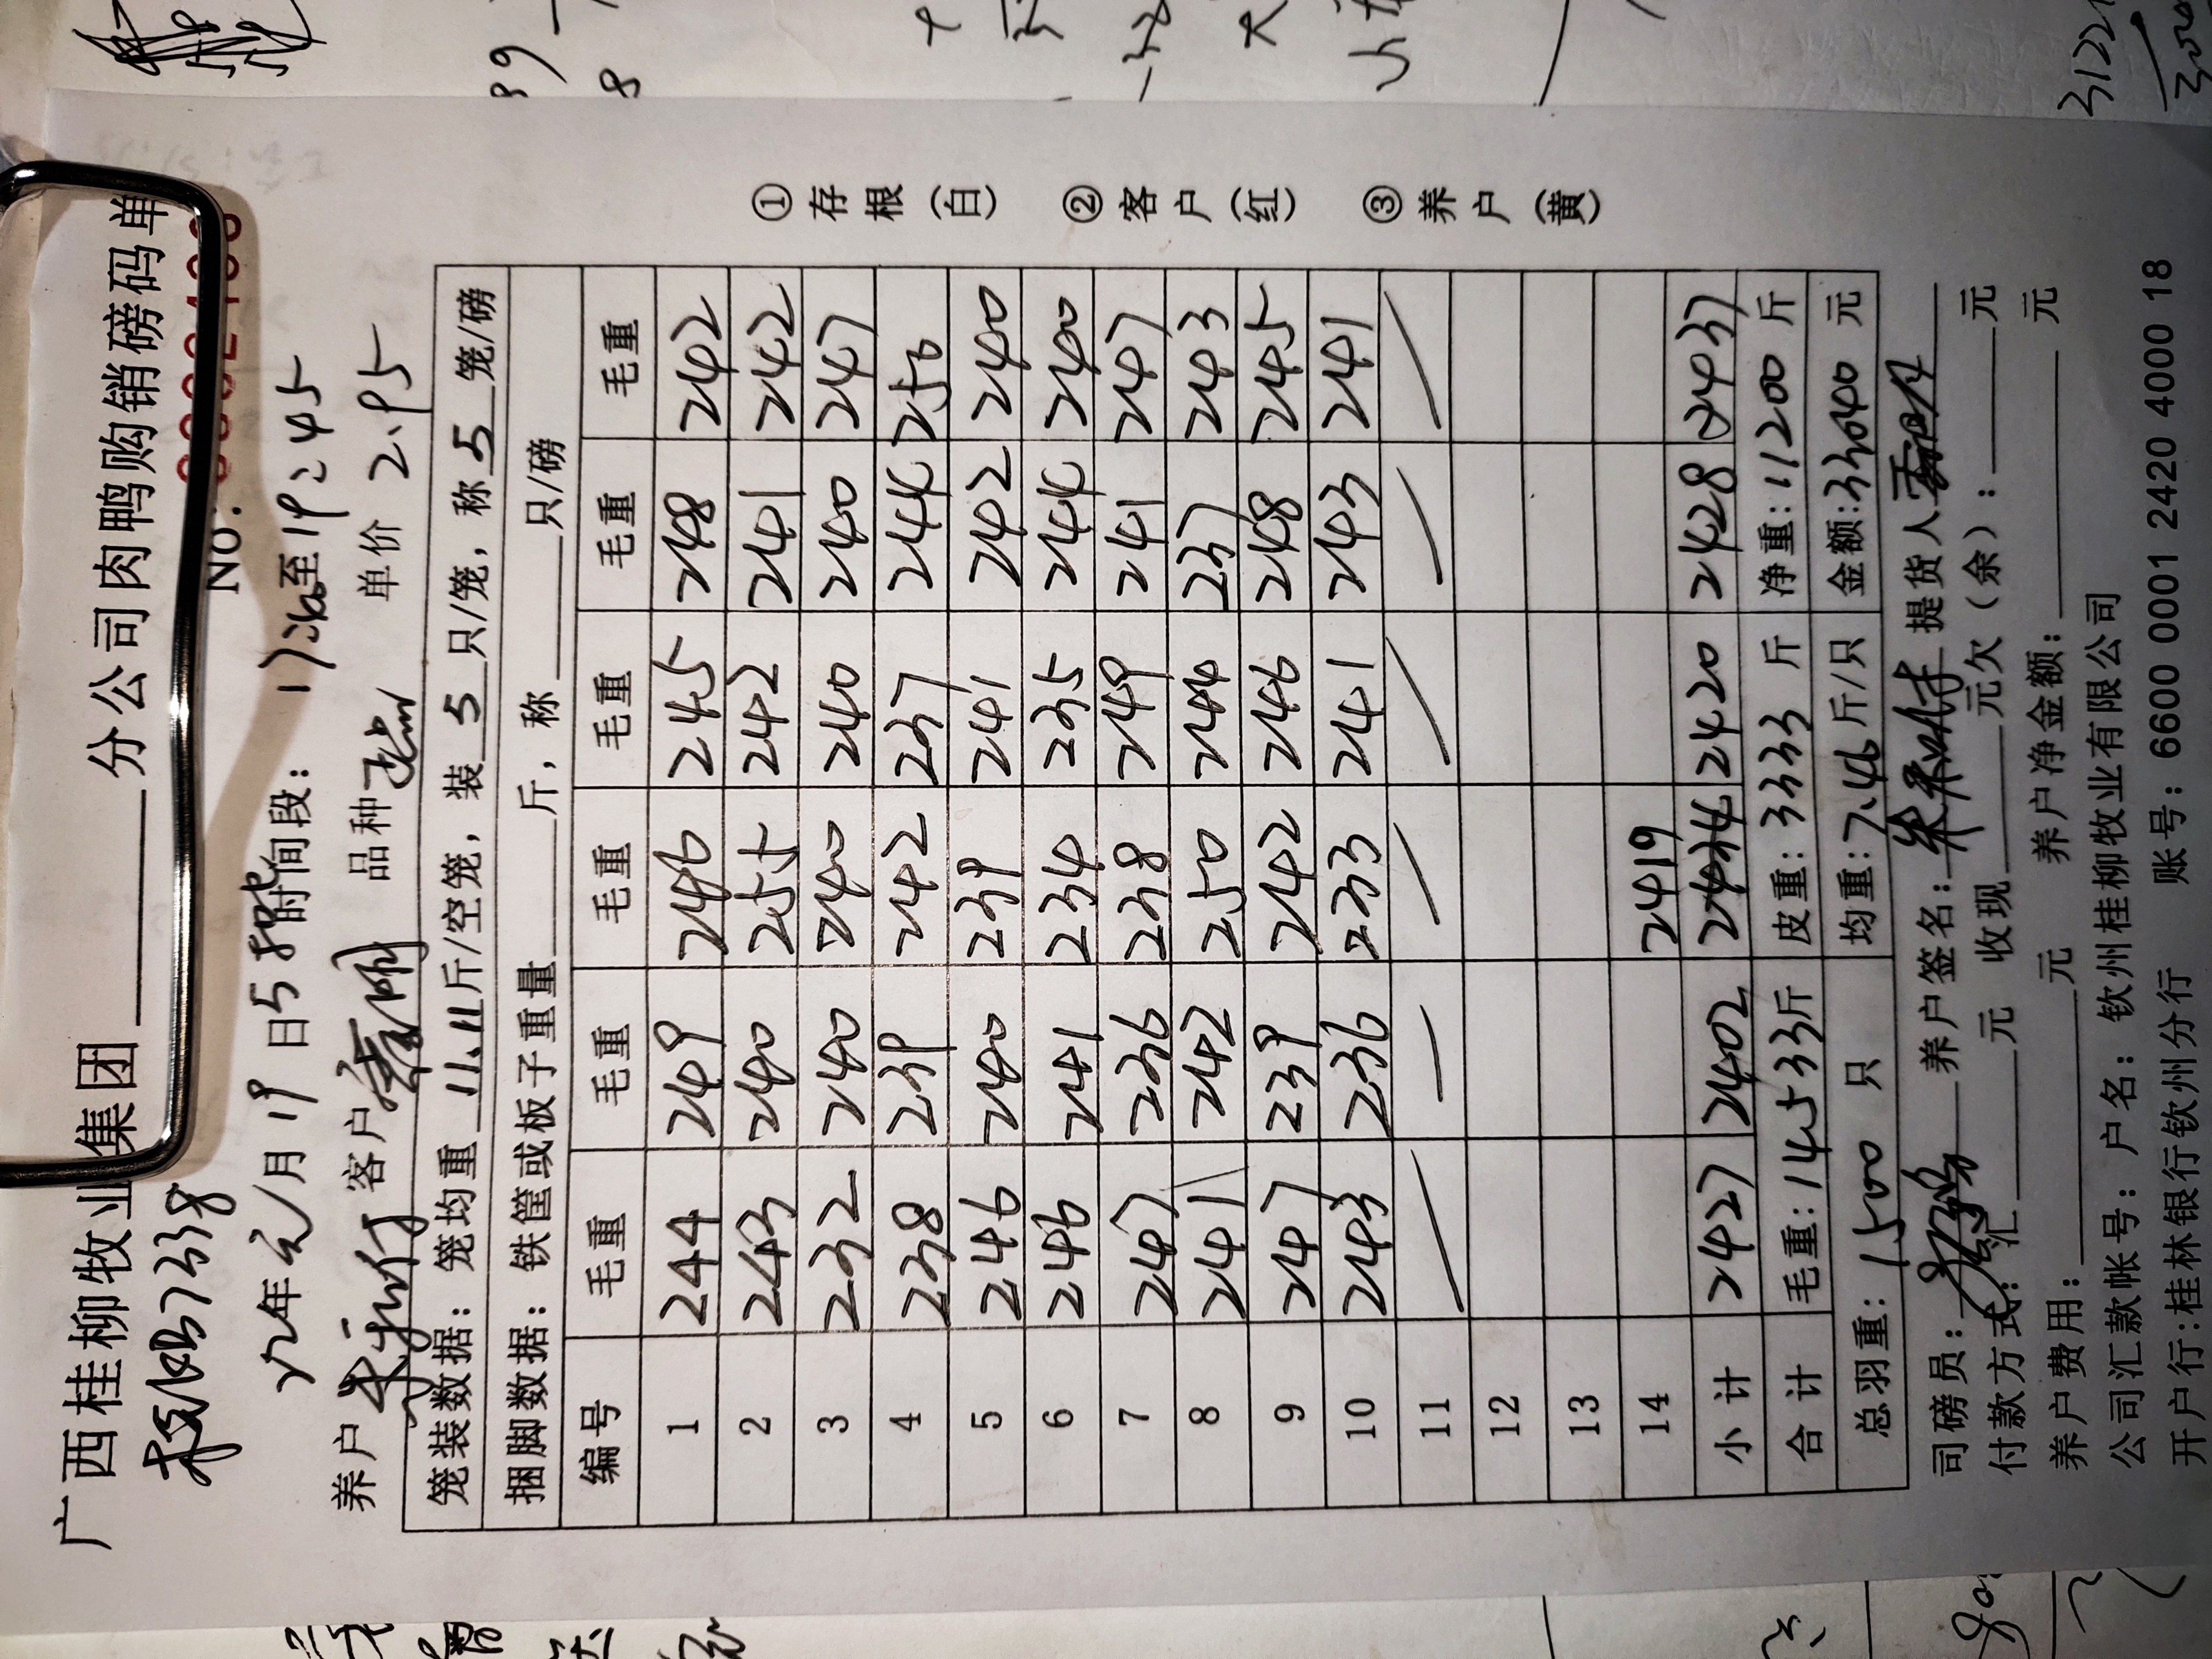 广西桂柳牧业集团 分公司肉鸭购销磅码单
7338 NO:
22年元月19日5 时间段： 17: 至19:45
养户 客户 品种 单价 2.95
笼装数据：笼均重 11.11 斤/空笼，装 5 只/笼，称 5 笼/磅
捆脚数据：铁筐或板子重量 斤，称 只/磅
编号 毛重 毛重 毛重 毛重 毛重 毛重
1 244 249 246 245 248 242
2 243 240 255 242 241 242
3 232 240 240 240 240 247
4 238 239 242 237 244 250
5 246 240 239 241 242 240
6 246 241 234 235 244 240
7 247 236 238 249 241 247
8 241 242 250 244 237 243
9 247 239 242 246 248 245
10 243 236 233 241 243 241
11
12
13
14 2419
小计 2427 2402 2420 2428 2437
合计 毛重：14533斤 皮重：3333 斤 净重：11200 斤
总羽重：1500 只 均重：7.46斤/只 金额：33040 元
司磅员： 养户签名： 提货人
付款方式：汇 元 收现 元欠（余）： 元
养户费用： 元 养户净金额： 元
公司汇款帐号：户名：钦州桂柳牧业有限公司
开户行:桂林银行钦州分行 账号：6600 0001 2420 4000 18
①存根（白） ②客户（红） ③养户（黄）